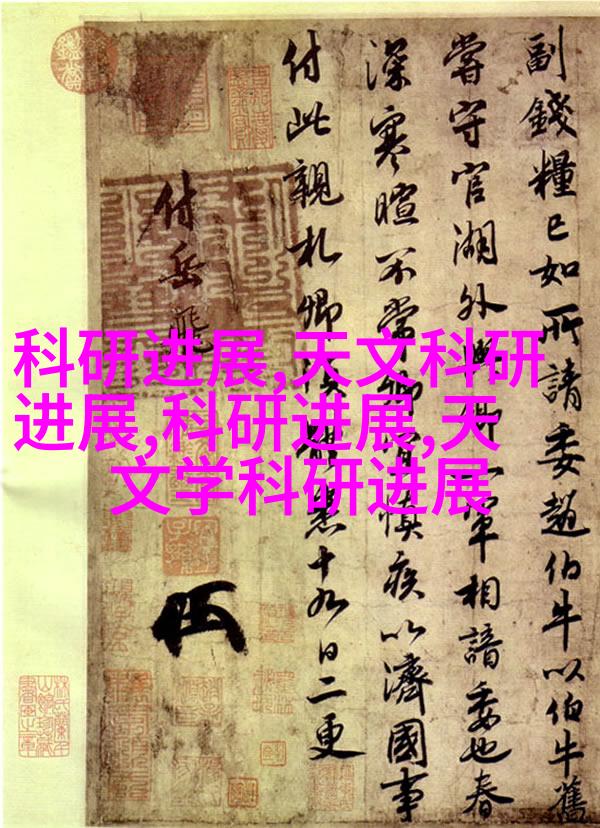 科研进展,天文科研
进展,科研进展,天
文学科研进展
副錢糧已如所請委趙伯牛以伯牛舊
嘗守官湖外與卿一軍相諳委也春
深寒暄不常卿宜慎疾以濟國事
付此親札卿須體悉十九日二更
付岳飛